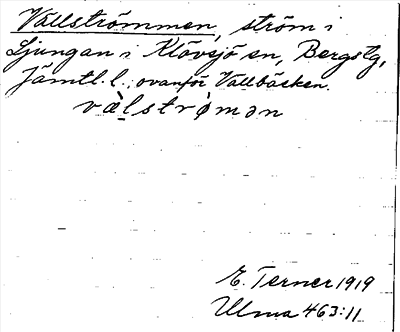 Vallströmmen, ström i
Ljungan i Klövsjö sn, Bergs tg,
Jämtl. l., ovanför Vallbäcken.
vàlströ̀mən
E. Terner 1919
Ulma 463:11